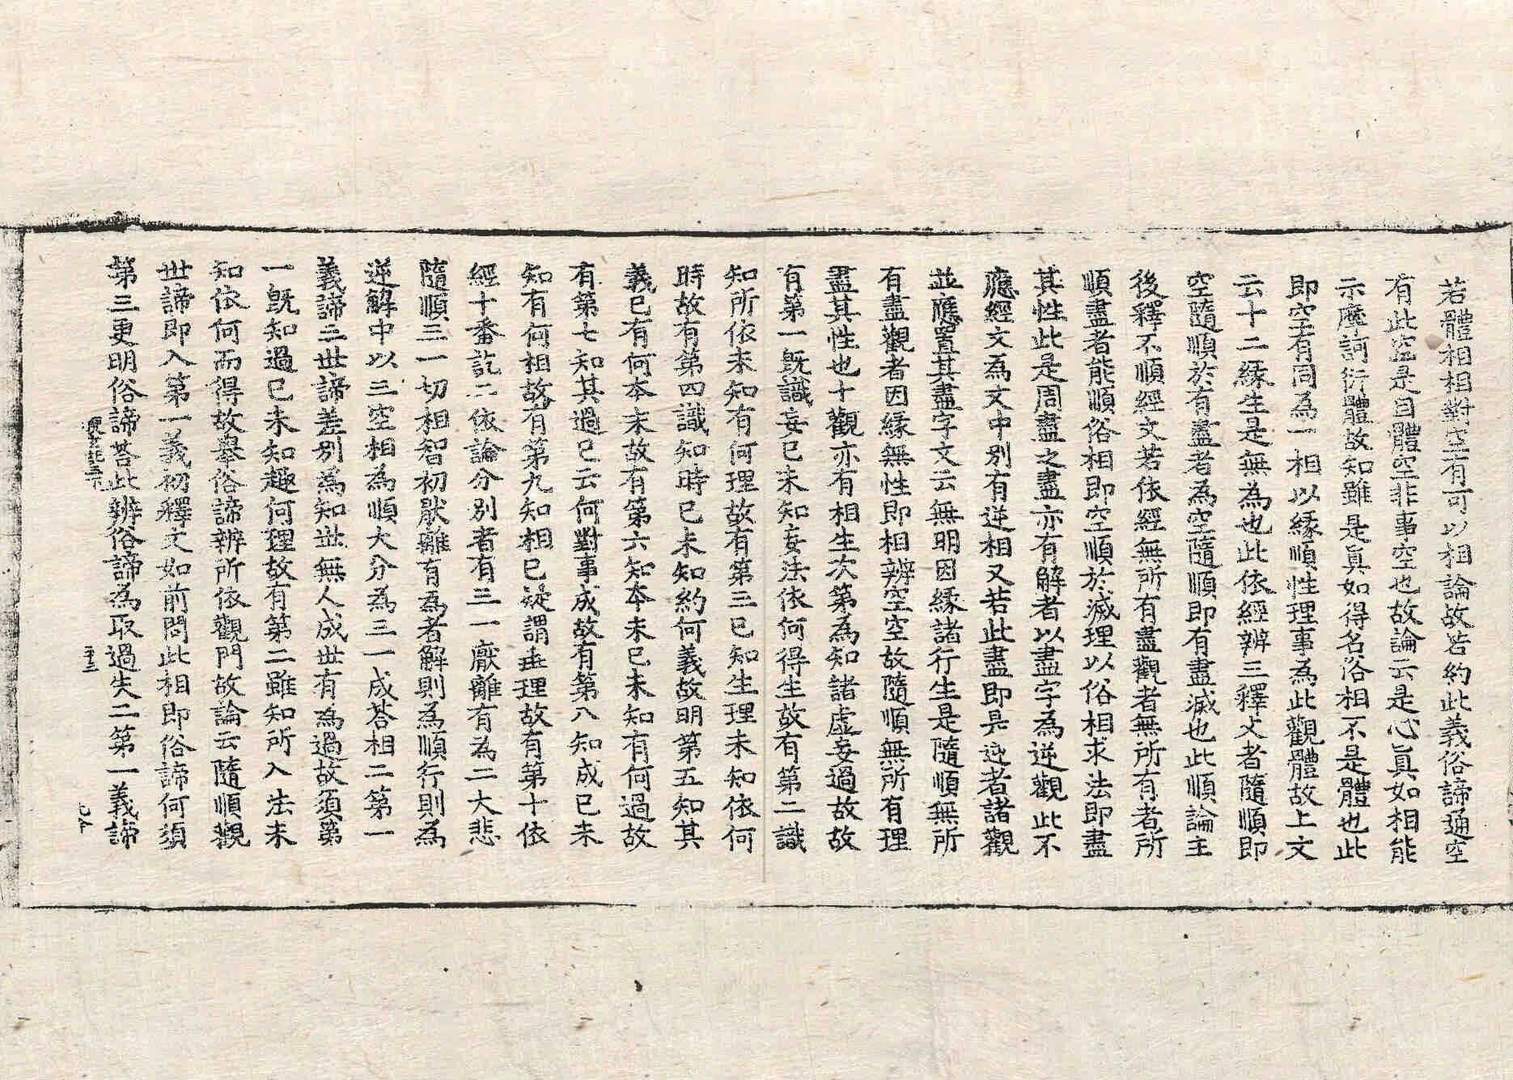 若體相相對空有可以相論故若約此義俗諦通空
有此空是自體空非事空也故論云是心真如相能
示摩訶衍體故知雖是真如得名俗相不是體也此
即空有同為一相以緣順性理事為此觀體故上文
云十二緣生是無為也此依經辨三釋文者隨順即
空隨順於有盡者為空隨順即有盡滅也此順論主
後釋不順經文若依經無所有盡觀者無所有者所
順盡者能順俗相即空順於滅理以俗相求法即盡
其性此是周盡之盡亦有解者以盡字為逆觀此不
應經文為文中別有逆相又若此盡即是逆者諸觀
並應置其盡字文云無明因緣諸行生是隨順無所
有盡觀者因緣無性即相辨空空故隨順無所有理
盡其性也十觀亦有相生次第為知諸虛妄過故故
有第一既識妄已未知妄法依何得生故有第二識
知所依未知有何理故有第三已知生理未知依何
時故有第四識知時已未知約何義故明第五知其
義已有何本末故有第六知本末已未知有何過故
有第七知其過已云何對事成故有第八知成已未
知有何相故有第九知相已疑謂乖理故有第十依
經十番訖二依論分別者有三一厭離有為二大悲
隨順三一切相智初猒離有為者解則為順行則為
逆解中以三空相為順大分為三一成荅相二第一
義諦三世諦差別為知世無人成世有為過故須第
一既知過已未知趣何理故有第二雖知所入法未
知依何而得故舉俗諦辨所依觀門故論云隨順觀
世諦即入第一義初釋文如前問此相即俗諦何須
第三更明俗諦荅此辨俗諦為取過失二第一義諦